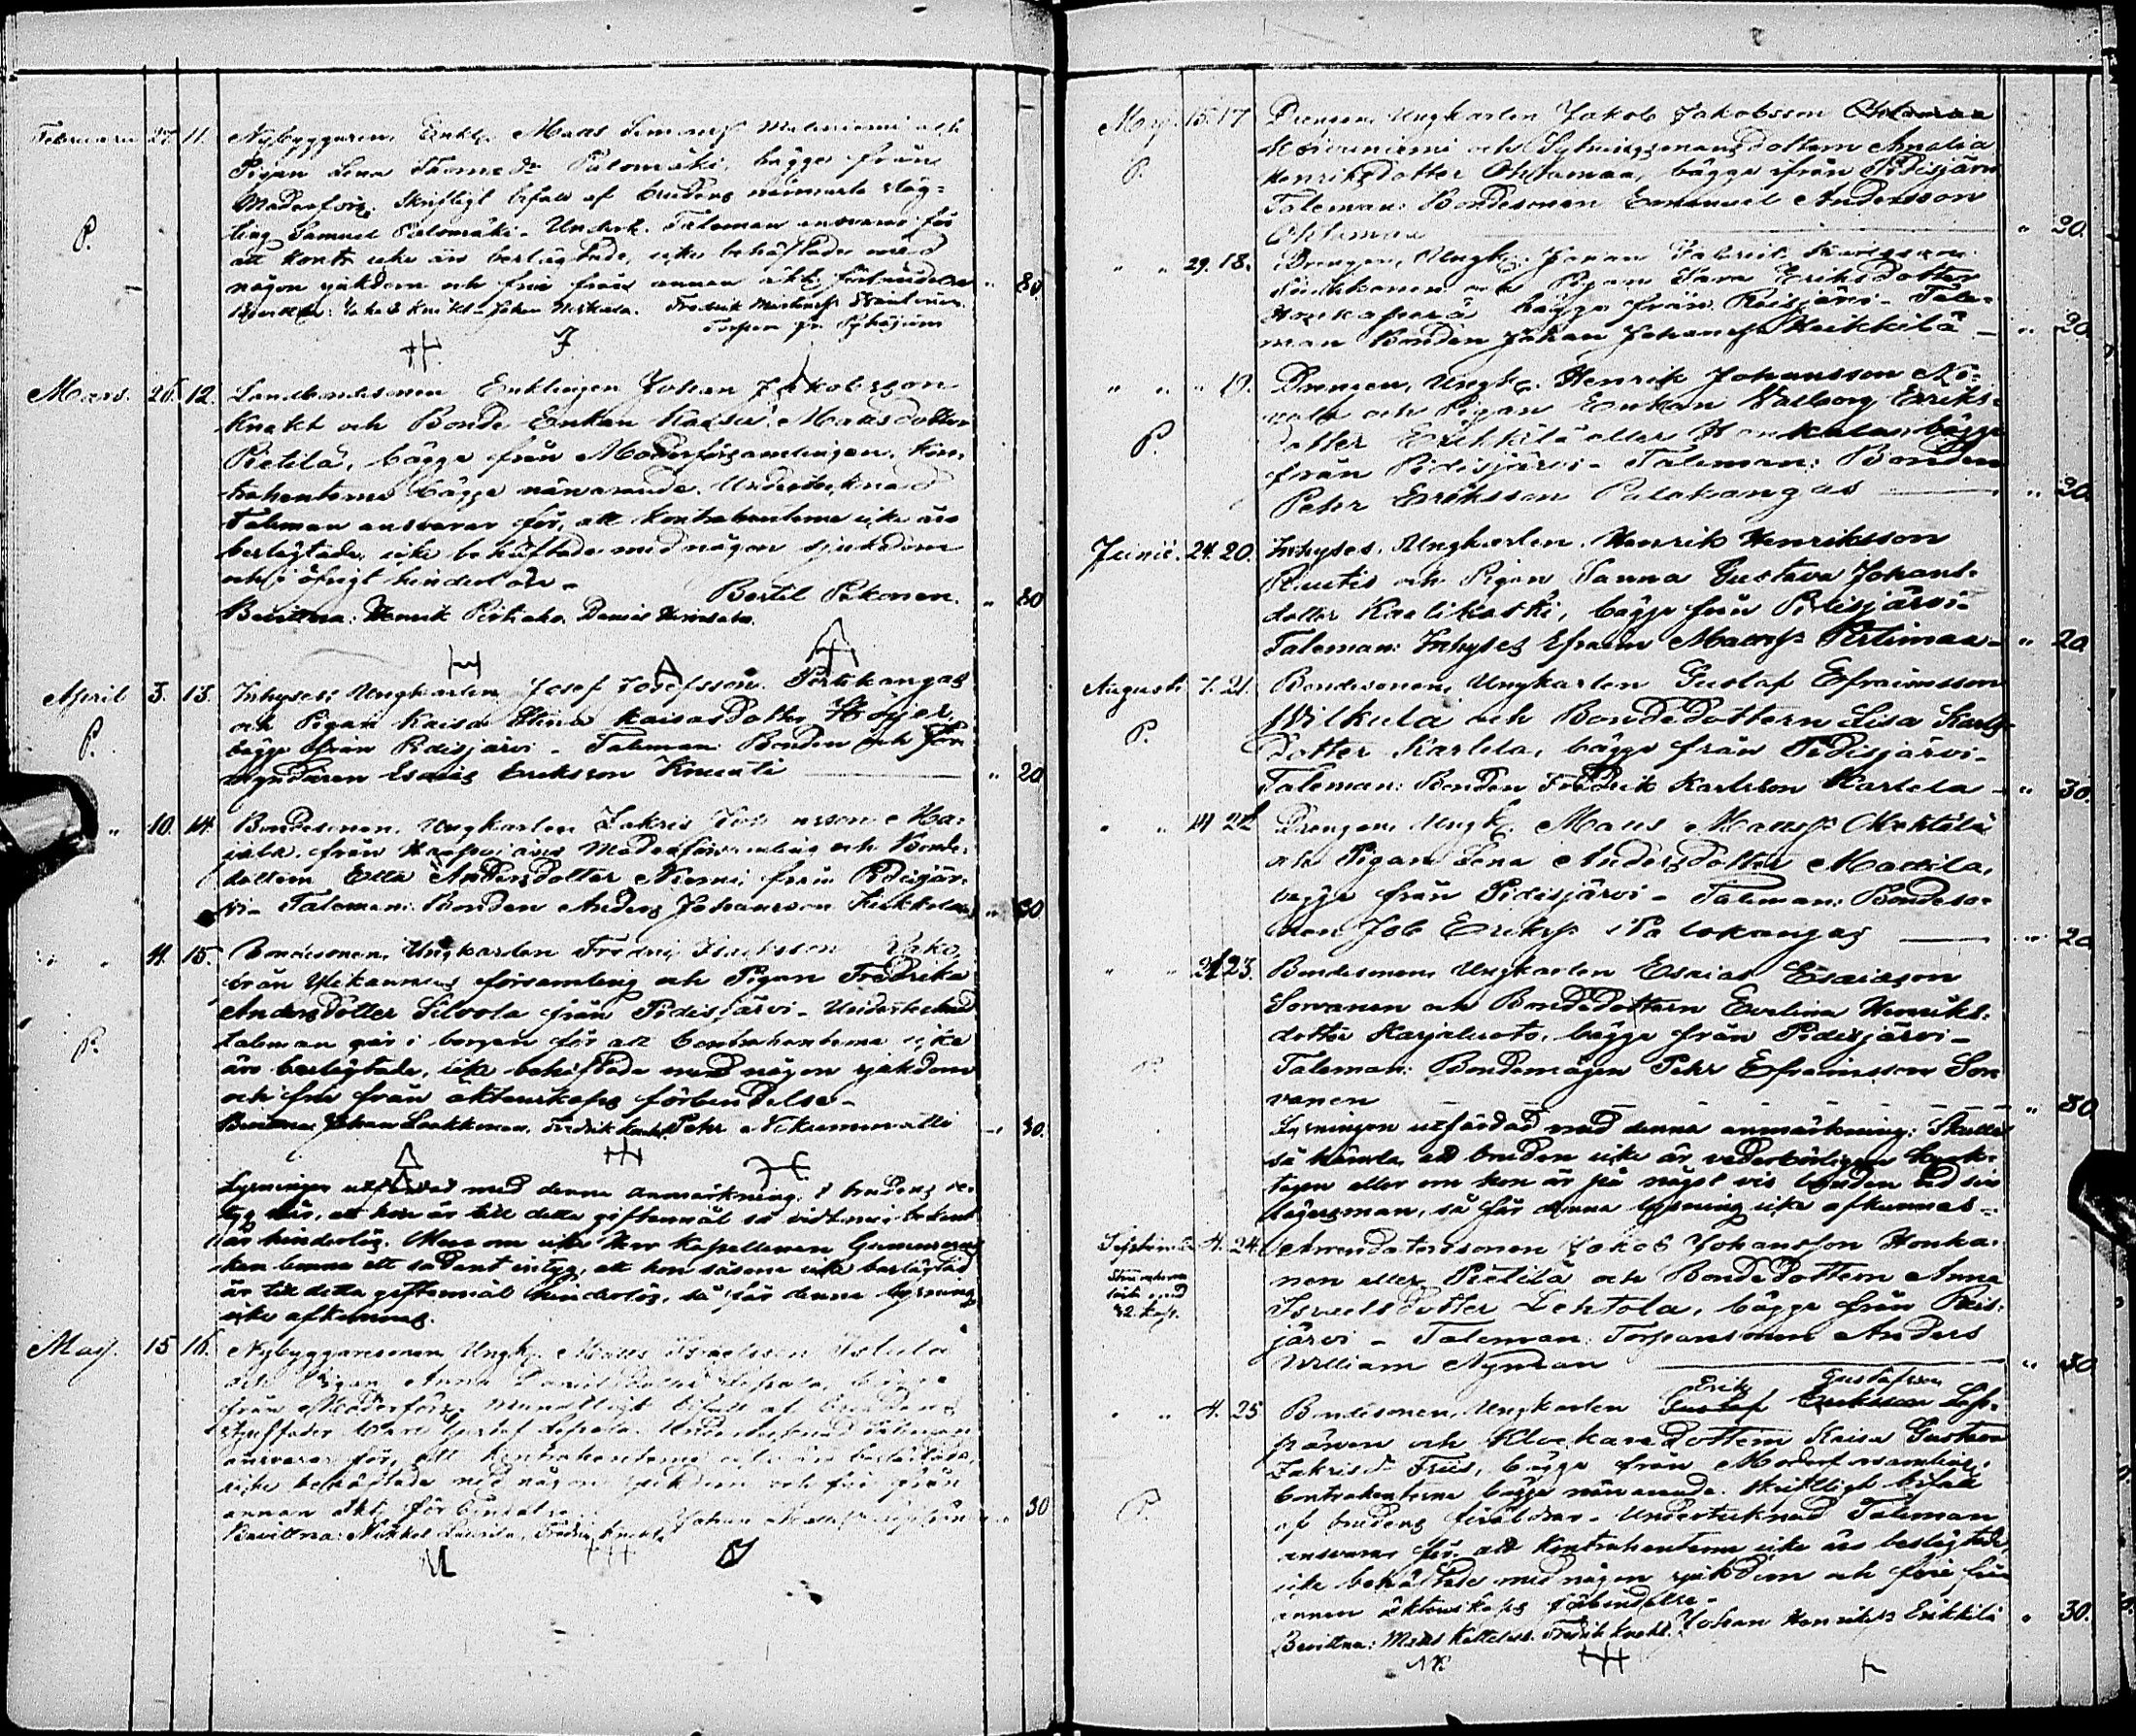 Februari 27. 11. Nybyggaren, Enkl. Matts Simonsson Malmiemi och
Pigan Lena Thomasdr Palomäki, bägge från
Moderförs. Skriftligt bifall af brudens närmaste släg-
P. ting Samuel Palomäki. Underteck. Taleman ansvarar för
att kontr. icke äro beslägtade, icke behäftade med
någon sjukdom och fria från annan äkt. förbindelse " 80.
Bevittna: Jakob Knekt. Johan Fredrik
Torpare fr. Pyhäjärvi
Mars. 26. 12. Landbondesonen Enklingen Johan Jakobsson
Knekt och Bonde Enkan Kaisa Mattsdotter
Pietilä, bägge från Moderförsamlingen. Kon-
trahenterne bägge närvarande. Undertecknad
Taleman ansvarar för, att Kontrahenterne icke äro
beslägtade, icke behäftade med någon sjukdom
och i öfrigt hinderlös.
Bertil Pekonen. " 80
Bevittna: Henrik Daniel
April 3. 13. Inhyses, Ungkarlen Josef Josefsson Pertukangas
och Pigan Kaisa Stina Kaisasdotter Höijer,
P. bägge från Pidisjärvi. Taleman: Bonden och för-
myndaren Esaias Eriksson Knuuti " 20
" 10. 14. Bondesonen, Ungkarlen Zakris Johansson Ma-
jala, från Haapajärvi Moderförsamling och Bonde-
dottern Etta Andersdotter Niemi från Pidisjär-
vi. Taleman: Bonden Anders Johansson " 30
" " 11. 15. Bondesonen, Ungkarlen Fredrik
från Ylikannus församling och Pigan Fredrika
Andersdotter Silvola från Pidisjärvi. Undertecknad
P. taleman går i borgen för att Contrahenterne icke
äro beslägtade, icke behäftade med någon sjukdom
och fria från äktenskaps förbindelse.
Bevittna: Johan Laakkonen, Fredrik Knekt, Pehr " 30.
Lysningen utfärdad med denna anmärkning: I brudens be-
tyg står, att hon är till detta giftermål så vidt mig bekant
är hinderlös. Men om icke Herr Kapellanen
kan lemna ett sådant intyg, att hon såsom icke beslägtad
är till detta giftermål hinderlös, så får denna lysning
icke afkunnas.
Maj. 15 16. Nybyggaresonen, Ungk. Matts Israelsson
och Pigan Anna Danielsdotter Lepola, bägge
från Moderförs. Muntligt bifall af brudens
styffader Gustaf Lepola. Undertecknad Taleman
ansvarar för, att Kontrahenterne icke äro beslägtade,
icke behäftade med någon sjukdom och fria från
annan äkt. förbindelse. Johan 30
Bevittna: Mikkel Laurila, Fredrik Knekt
Maj. 15. 17. Drengen, Ungkarlen Jakob Jakobsson
och Sytningsmansdottern Amalia
P. Henriksdotter Ohtamaa, bägge ifrån Pidisjärvi
Taleman: Bondesonen Emanuel Andersson
Ohtamaa " 20.
" " 29. 18. Drengen, Ungk. Johan Fabrik
och Pigan Sara Eriksdotter
Honkaperä bägge från Reisjärvi. Tale-
man Bonden Johan Johansson Heikkilä " 20.
" " " 19. Drengen, Ungk. Henrik Johansson
och Pigan Enkan Walborg Eriks-
P. dotter Erkkilä eller Honkala, bägge
från Pidisjärvi. Taleman: Bonden
Pehr Eriksson Palokangas " 20.
Junii. 24. 20. Inhyses, Ungkarlen Henrik Henriksson
och Pigan Sanna Gustava Johans-
dotter Kaalikoski, bägge från Pidisjärvi.
Taleman: Inhyses Efraim Mattsson Pertimaa " 20
Augusti 7. 21. Bondesonen, Ungkarlen Gustaf Efraimsson
Wilkula och Bondedottern Lisa Karls-
P. dotter Karlela, bägge från Pidisjärvi.
Taleman: Bonden Fredrik Karlsson Karlela " 30.
" " 14 22 Drengen, Ungk. Matts Mattsson Mehtälä
och Pigan Lena Andersdotter Mattila,
bägge från Pidisjärvi. Taleman: Bondeso-
nen Job Eriksson Palokangas " 20
" " 21 23. Bondesonen, Ungkarlen Esaias Esaiasson
Sorvanen och Bondedottern Evelina Henriks-
dotter Karjaluoto, bägge från Pidisjärvi.
P. Taleman: Bondemågen Pehr Efraimsson Sor-
vanen " 30
Lysningen utfärdad med denna anmärkning: Skulle
så hända, att bruden icke är vederbörligen kyrk-
tagen eller om hon är på något vis bunden vid sin
lägersman, så får denna lysning icke afkunnas.
September 4. 24. Arrendatorssonen Jakob Johansson Honka-
nen eller Pietilä och Bondedottern Anna
Israelsdotter Lehtola, bägge från Reis-
järvi. Taleman: Torparesonen Anders
William Nyman " 30
" " 4. 25 Bondesonen, Ungkarlen Gustaf Eriksson Lep-
Erik Gustafsson
pänen och Klockaredottern Kaisa Gustava
Zakrisdr Friis, bägge från Moderförsamling.
Contrahenterne bägge närvarande. Skriftligt bifall
P. af brudens föräldrar. Undertecknad Taleman
ansvarar för att Kontrahenterne icke äro beslägtade,
icke behäftade med någon sjukdom och fria från
annan äktenskaps förbindelse.
Bevittna: Matts Fredrik Knekt. Johan Henriksson Erkkilä " 30.